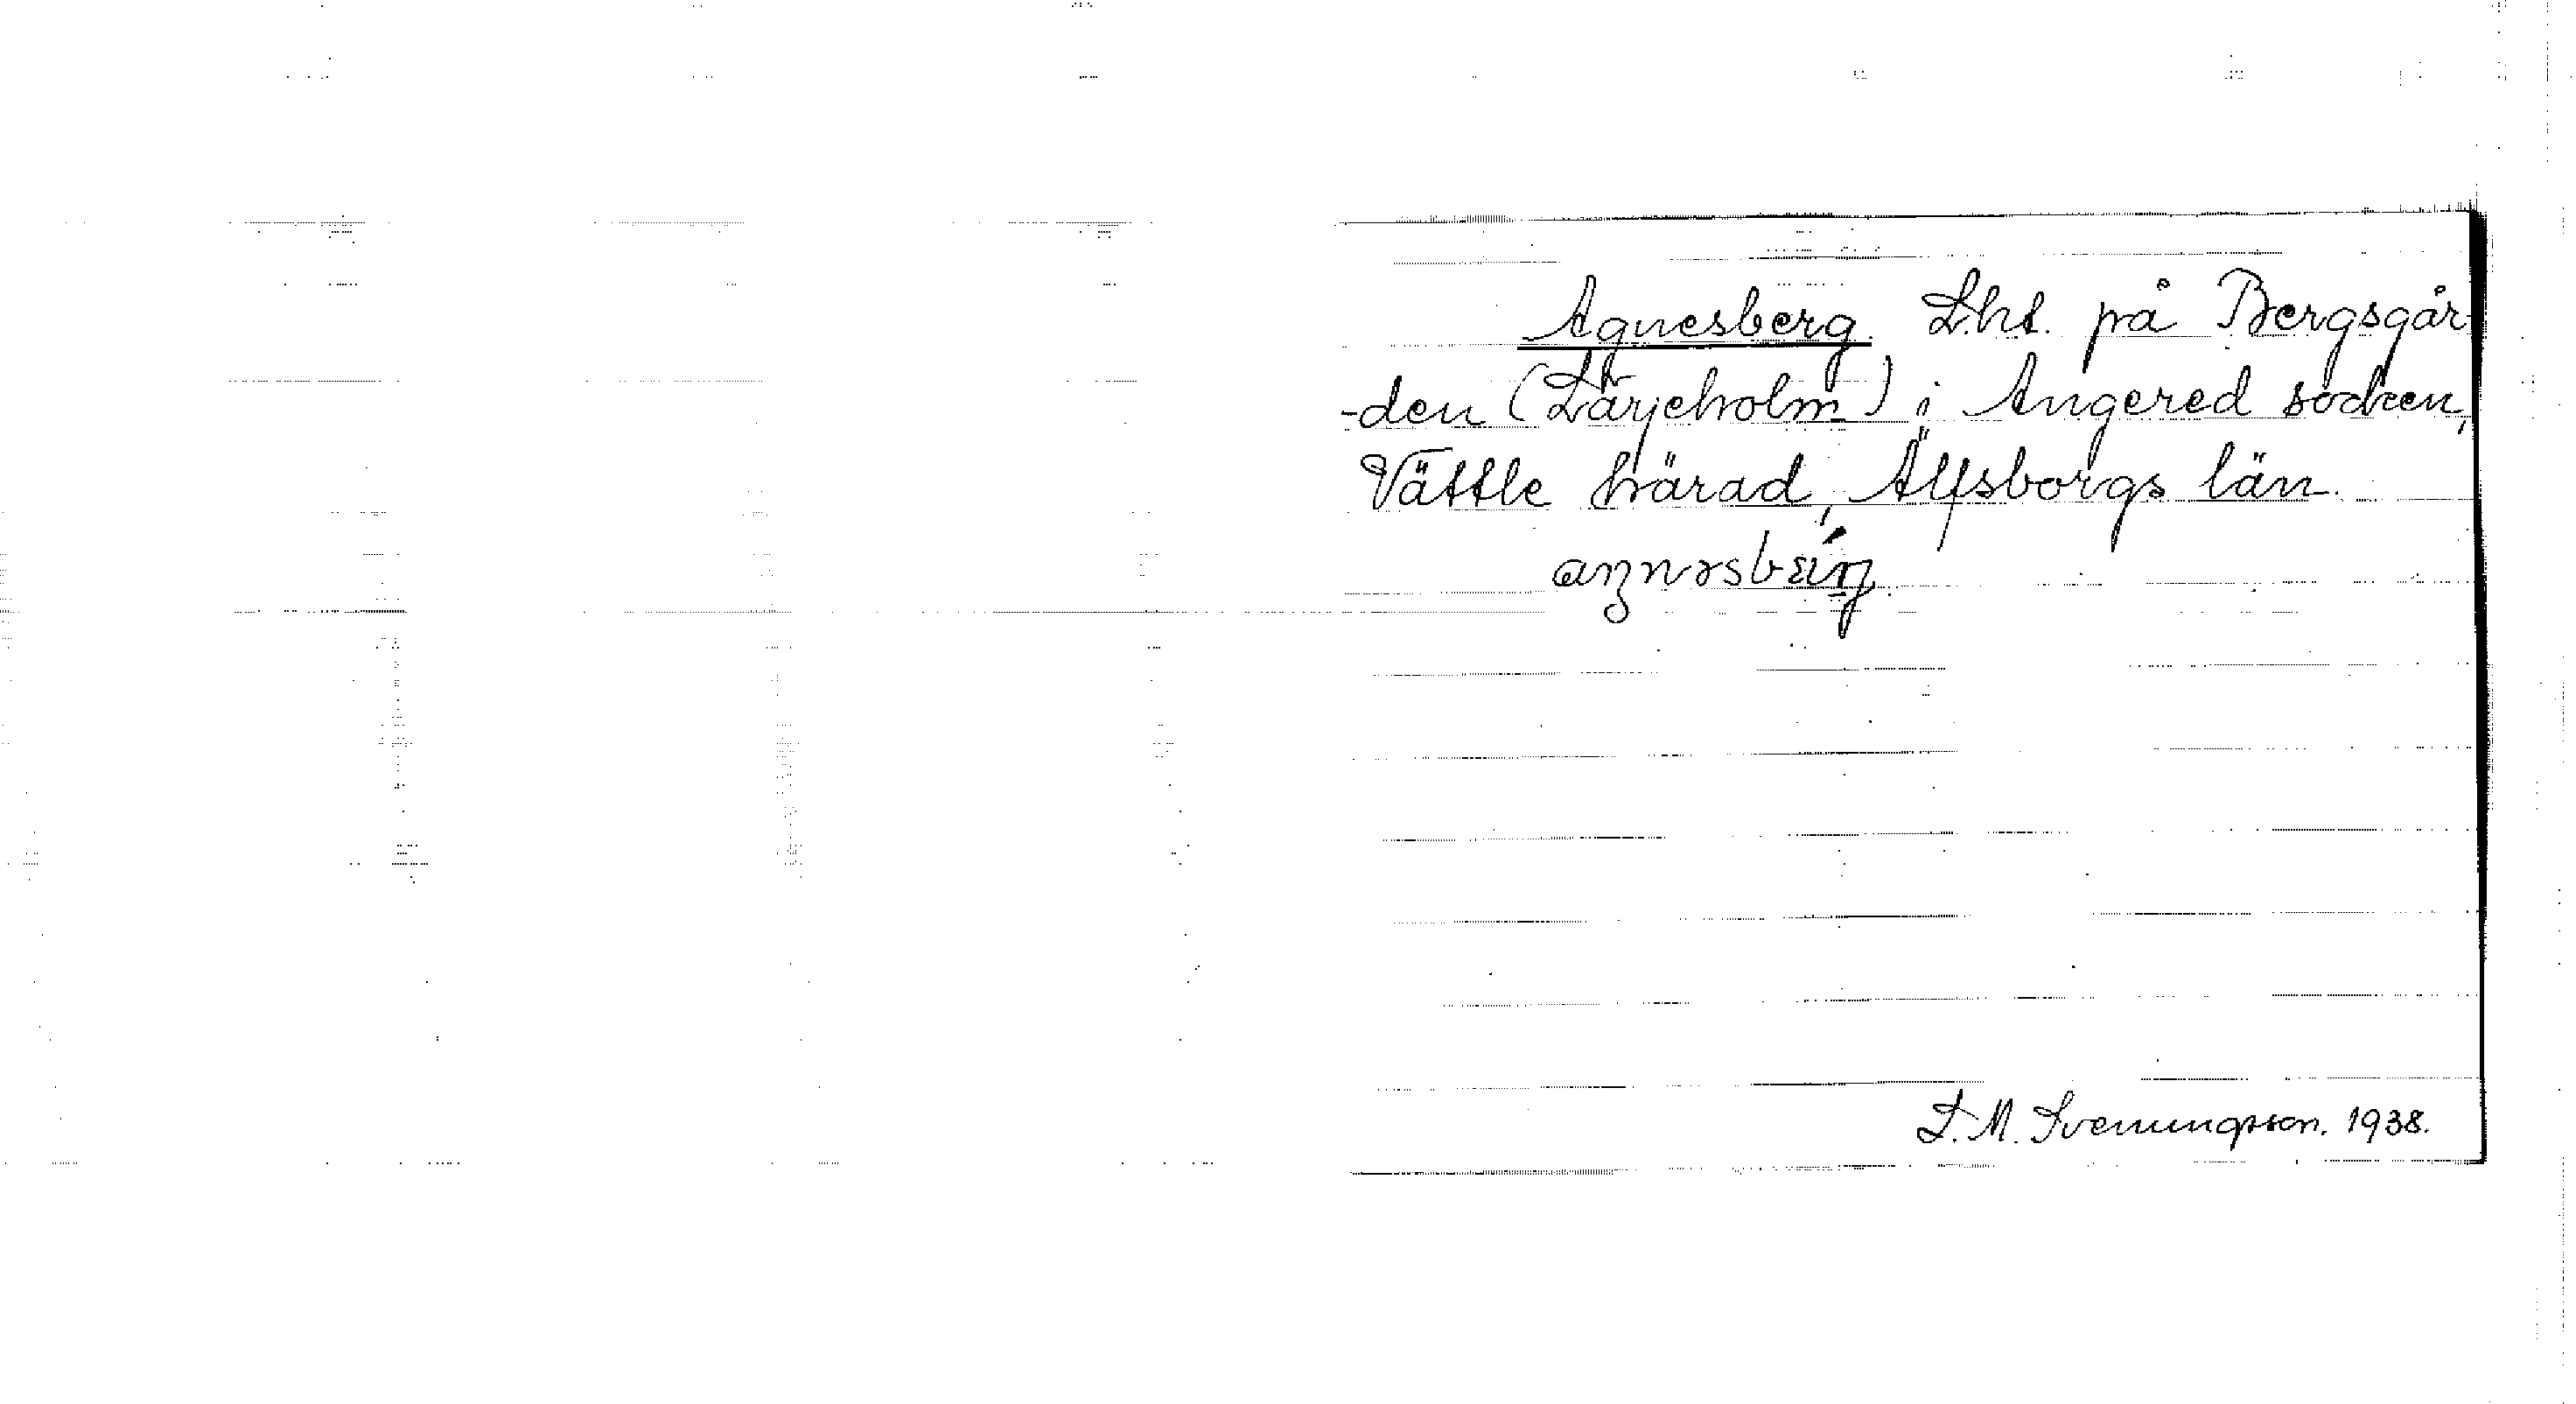 Agnesberg. Lht. på Bergsgår-
-den (Lärjeholm) i Angered socken,
Vättle härad, Älfsborgs län.
S. M. Svenungsson. 1938.